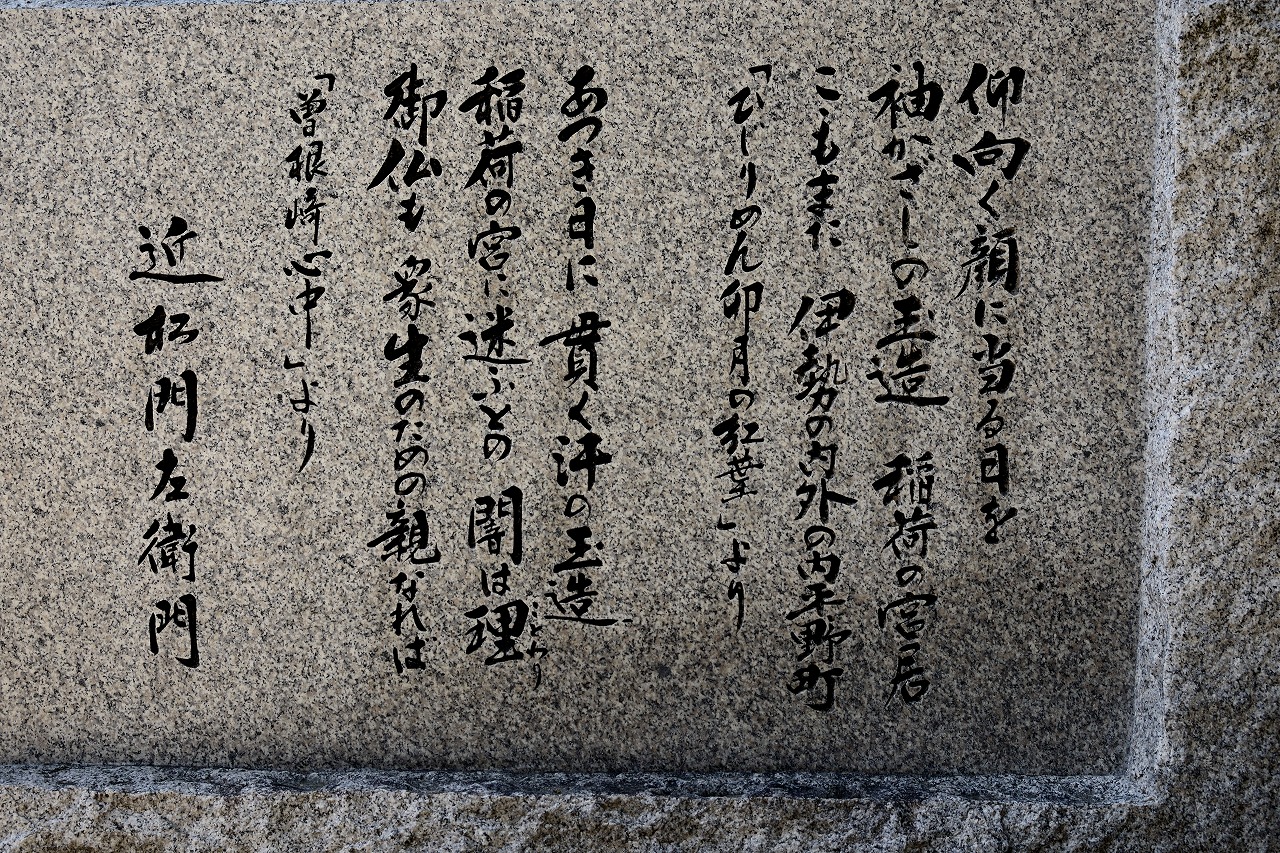 仰向く顔に当る日を
袖がざしの玉造 稲荷の宮居
こもまた 伊勢の内外の内平野町
「ひぢりめん卯月の紅葉」より
あつき日に貫く汗の玉造
稲荷の宮に迷ふとの 闇は理
ことわり
御仏も 衆生のための親なれば
「曽根崎心中」より
近松門左衛門